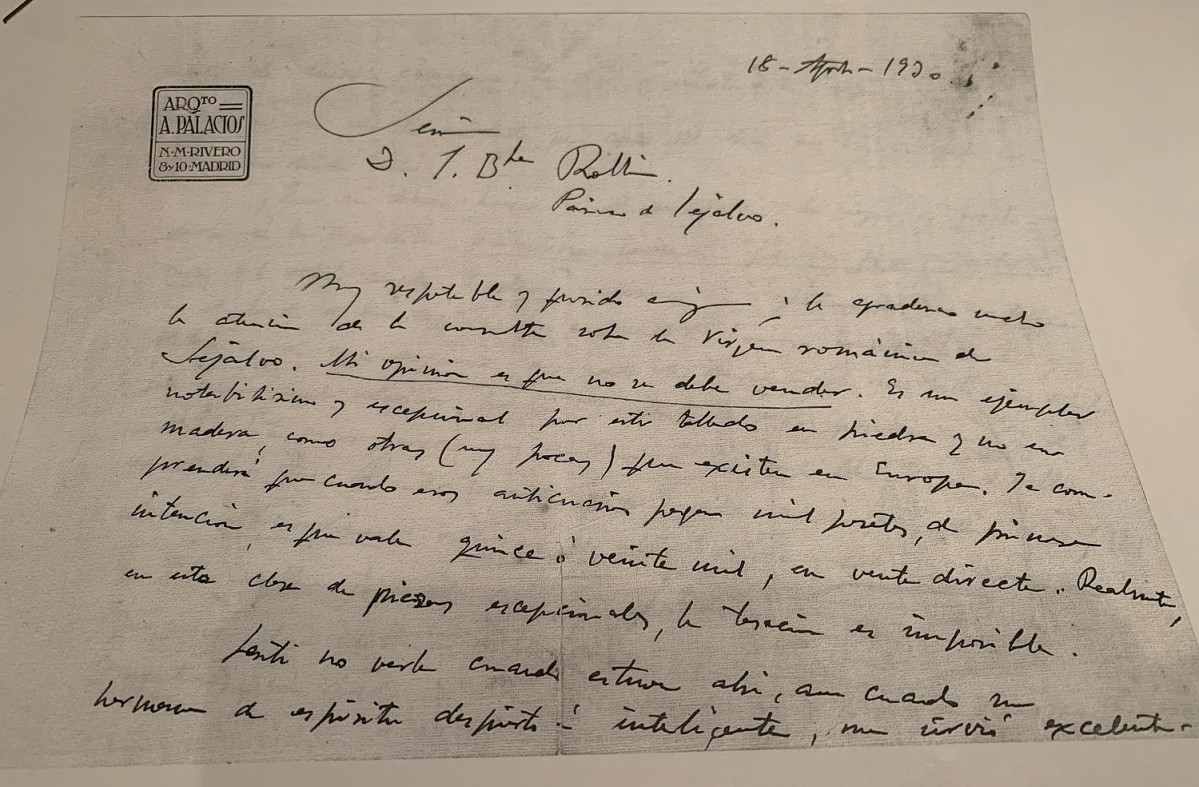 18 - Agto - 1920.
ARQTO
A. PALACIOS
N·M·RIVERO
8 y 10·MADRID
Señor
D. J. Bta Rolli
Párroco de Sejalvo.
Muy respetable y querido amigo: le agradezco mucho
la atención de la consulta sobre la Virgen románica de
Sejalvo. Mi opinión es que no se debe vender. Es un ejemplar
notabilísimo y escepcional por estar tallado en piedra y no en
madera, como otras (muy pocas) que existen en Europa. Ya com-
prenderá que cuando esos anticuarios pagan mil pesetas, de primera
intención, es que vale quince ó veinte mil, en venta directa. Realmente,
en esta clase de piezas escepcionales, la tasación es imposible.
Sentí no verle cuando estuve ahí, aun cuando su
hermano de espíritu despierto é inteligente, me sirvió excelente-